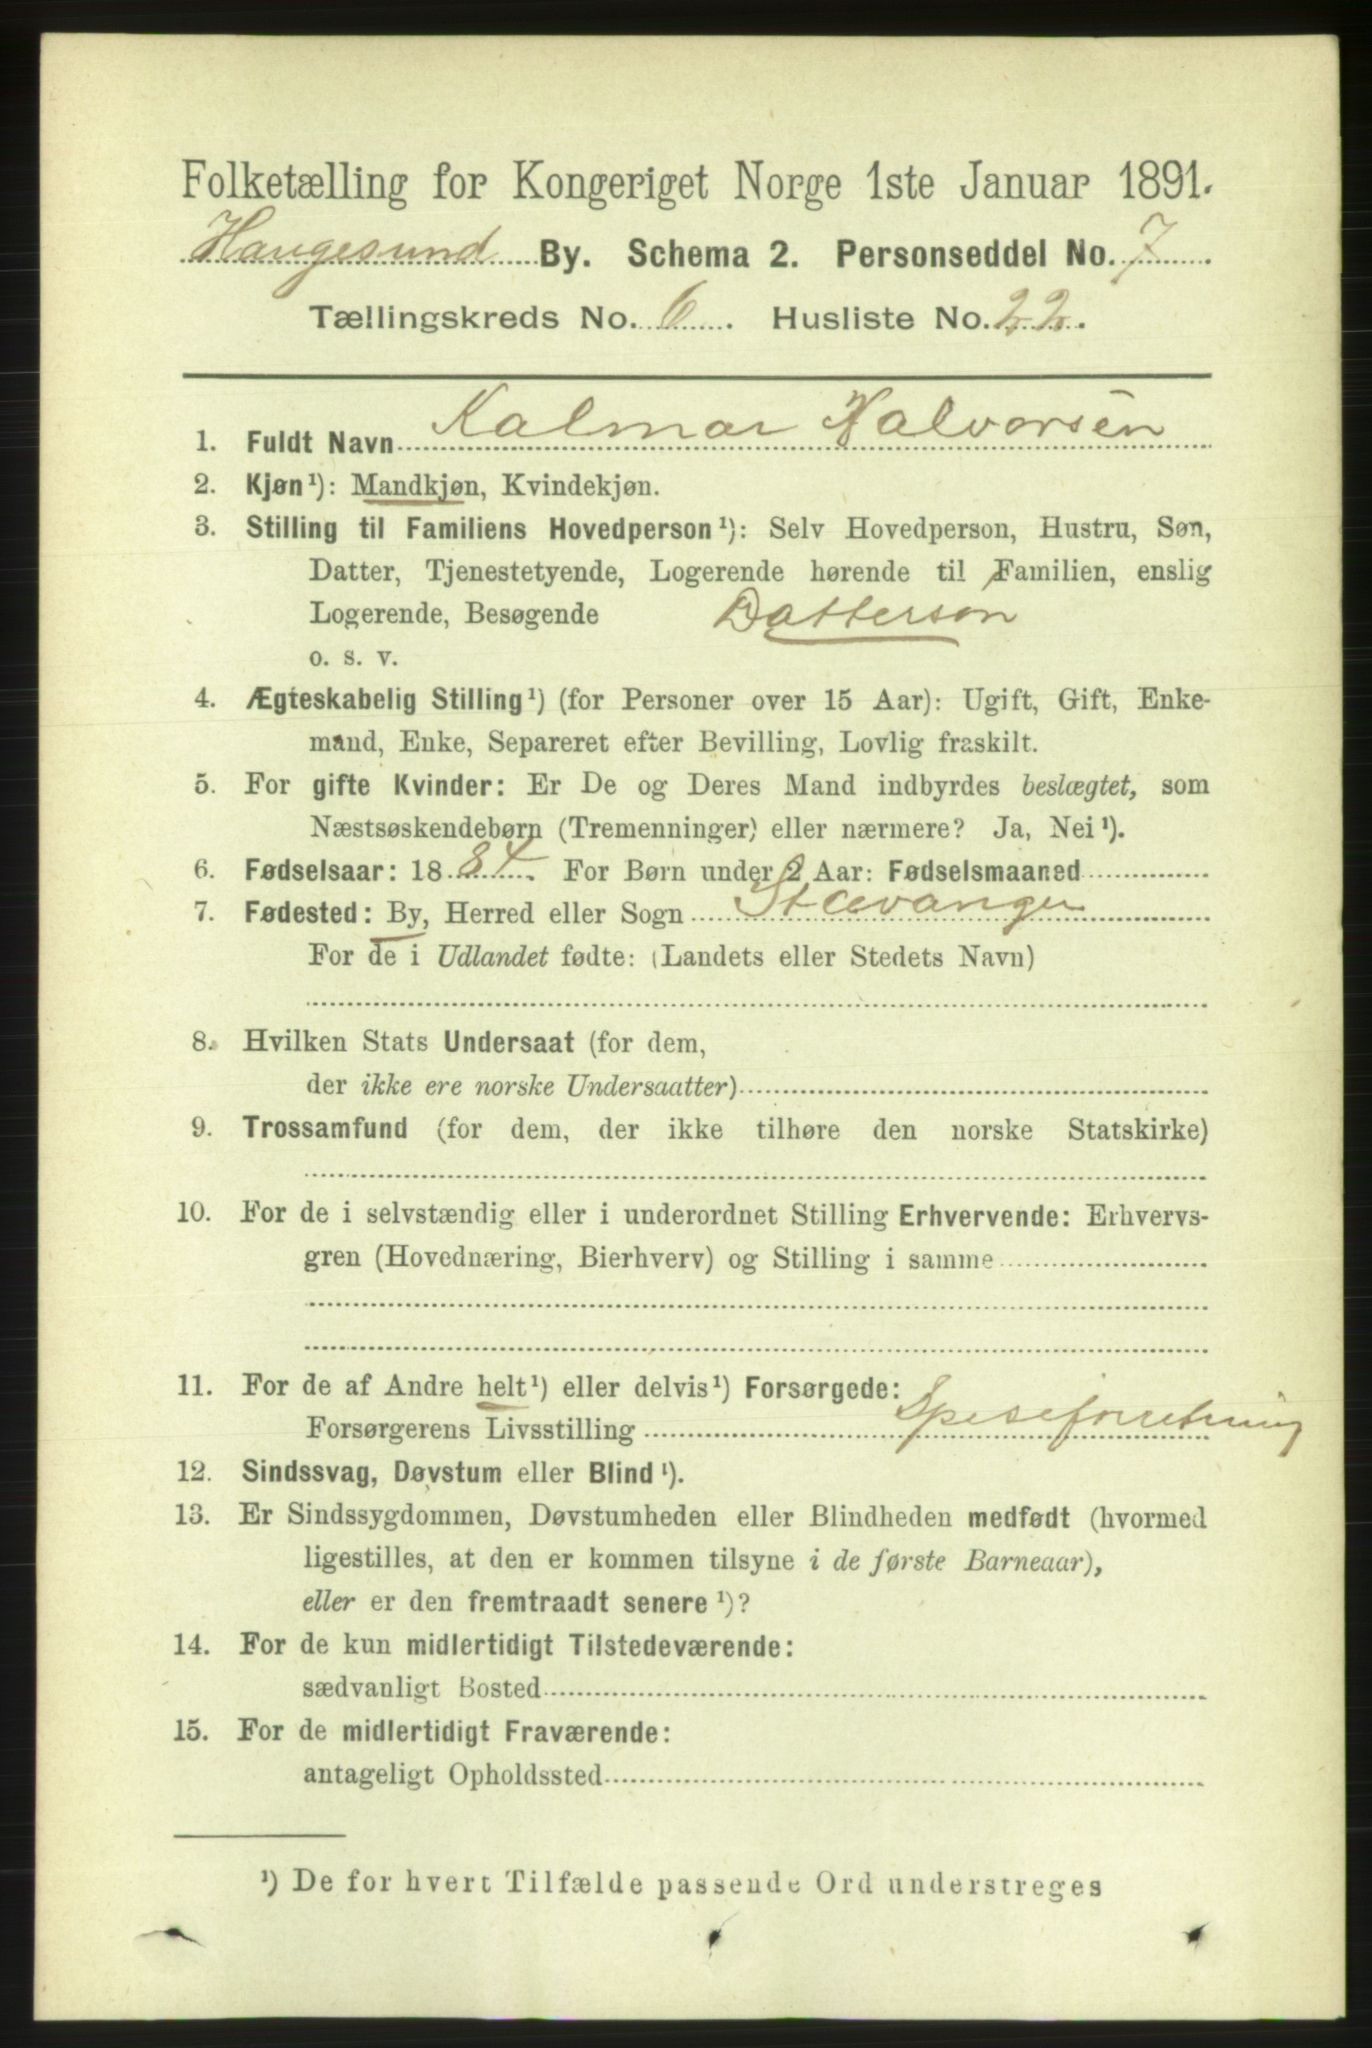 Folketælling for Kongeriget Norge 1ste Januar 1891.
Haugesund By. Schema 2. Personseddel No. 7
Tællingskreds No. 6. Husliste No. 22.
1. Fuldt Navn Kalmar Halvorsen
2. Kjøn¹): Mandkjøn, Kvindekjøn.
3. Stilling til Familiens Hovedperson¹): Selv Hovedperson, Hustru, Søn,
Datter, Tjenestetyende, Logerende hørende til Familien, enslig
Logerende, Besøgende Dattersøn
o. s. v.
4. Ægteskabelig Stilling¹) (for Personer over 15 Aar): Ugift, Gift, Enke-
mand, Enke, Separeret efter Bevilling, Lovlig fraskilt.
5. For gifte Kvinder: Er De og Deres Mand indbyrdes beslægtet, som
Næstsøskendebørn (Tremenninger) eller nærmere? Ja, Nei¹).
6. Fødselsaar: 1884. For Børn under 2 Aar: Fødselsmaaned
7. Fødested: By, Herred eller Sogn Stavanger
For de i Udlandet fødte: (Landets eller Stedets Navn)
8. Hvilken Stats Undersaat (for dem,
der ikke ere norske Undersaatter)
9. Trossamfund (for dem, der ikke tilhøre den norske Statskirke)
10. For de i selvstændig eller i underordnet Stilling Erhvervende: Erhvervs-
gren (Hovednæring, Bierhverv) og Stilling i samme
11. For de af Andre helt¹) eller delvis¹) Forsørgede:
Forsørgerens Livsstilling Spiseforretning
12. Sindssvag, Døvstum eller Blind¹).
13. Er Sindssygdommen, Døvstumheden eller Blindheden medfødt (hvormed
ligestilles, at den er kommen tilsyne i de første Barneaar),
eller er den fremtraadt senere¹)?
14. For de kun midlertidigt Tilstedeværende:
sædvanligt Bosted
15. For de midlertidigt Fraværende:
antageligt Opholdssted
¹) De for hvert Tilfælde passende Ord understreges